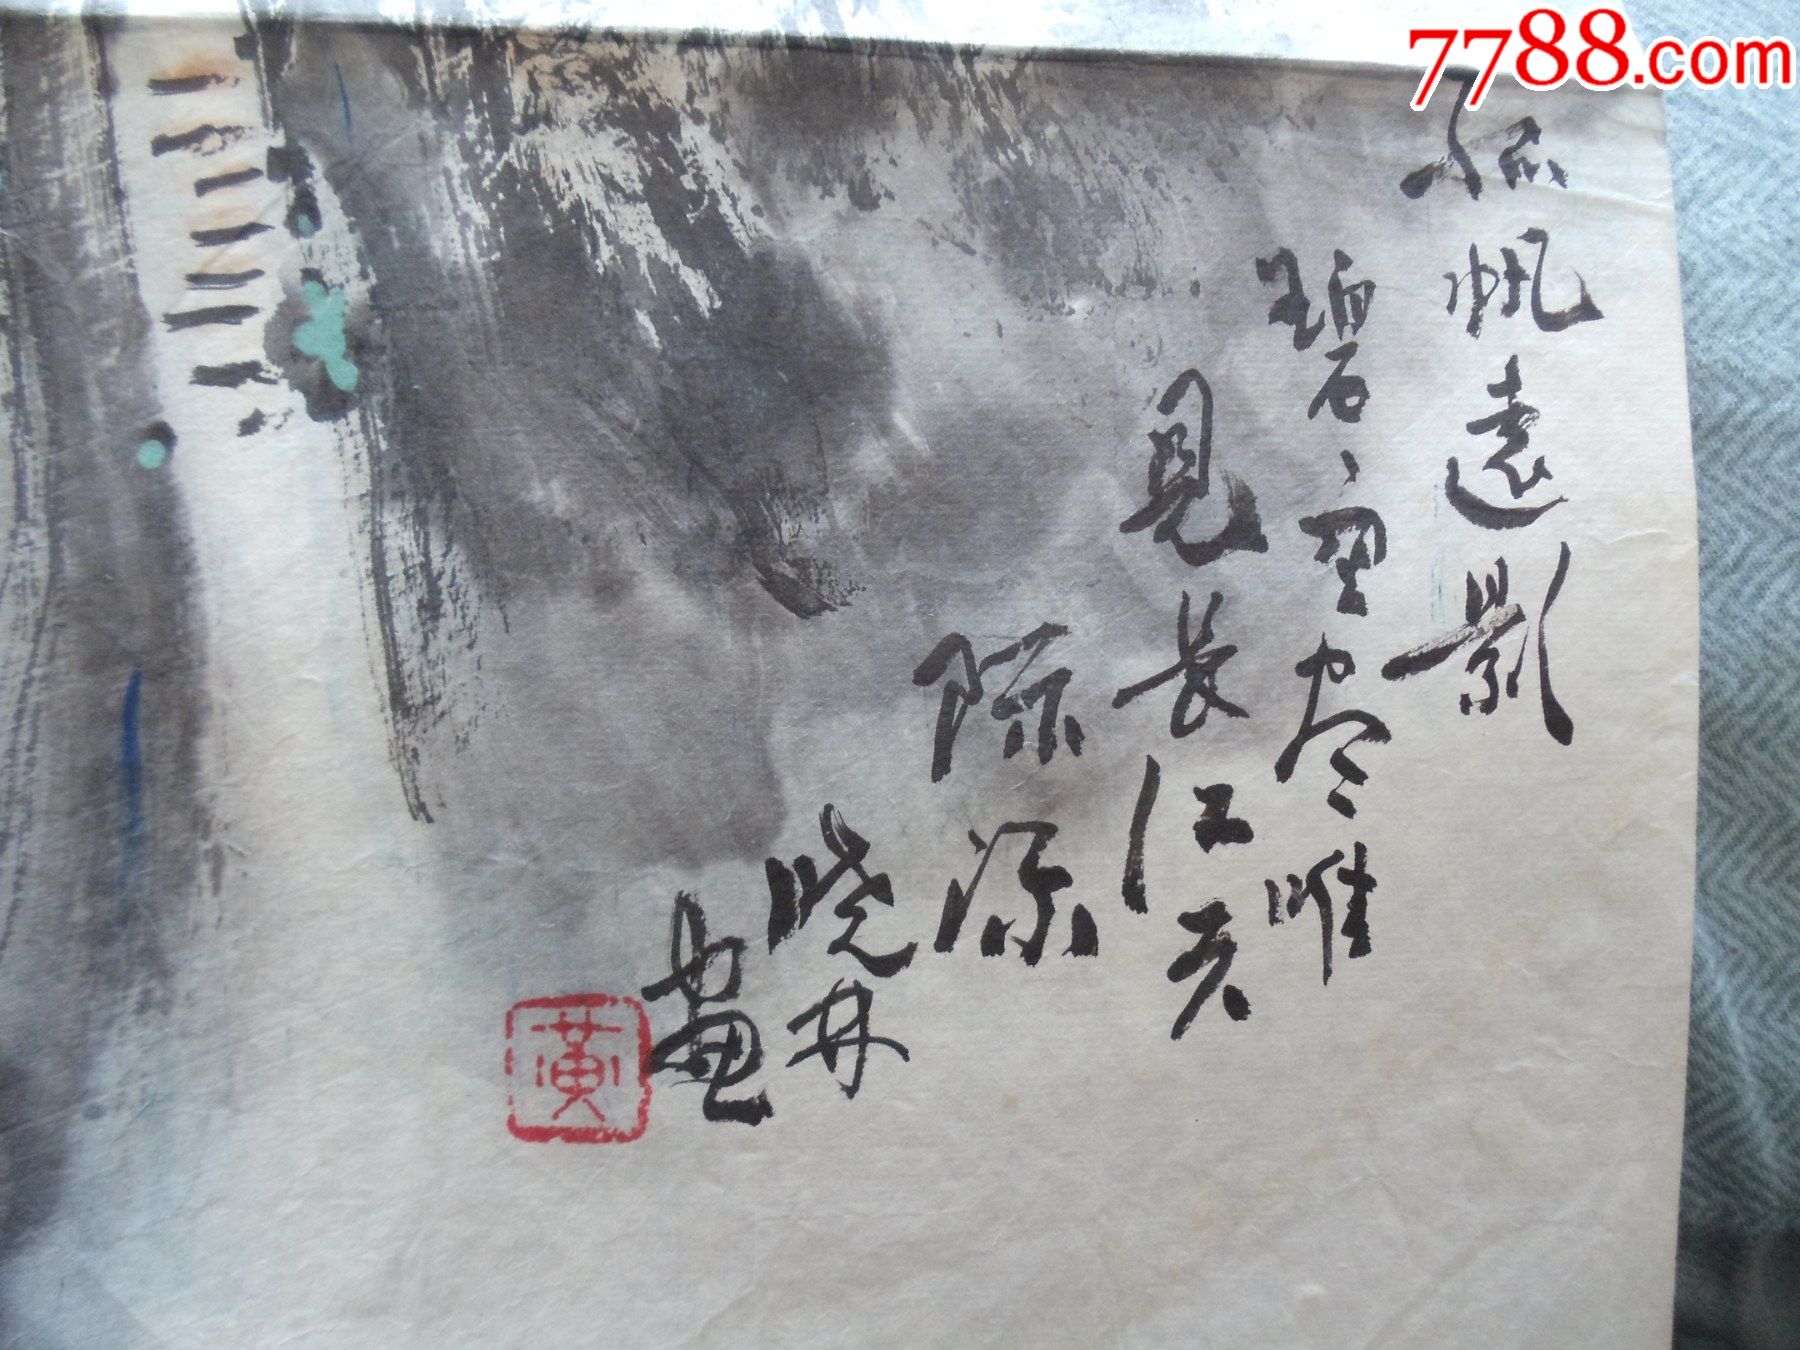 7788.com
孤帆遠影
碧空尽唯
見長江天
际流
晓
畫
黄